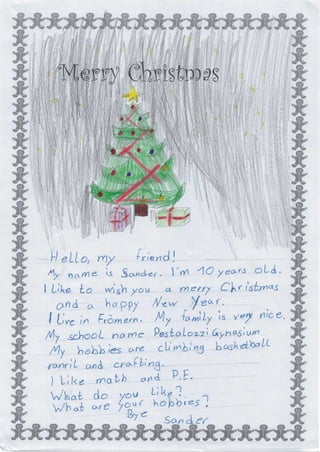 Merry Christmas
Hello, my friend!
My name is Sander. I'm 10 years old.
I Like to wish you a merry Christmas
and a happy New Year.
I Live in Frömern. My family is very nice.
My school name Pestalozzi Gynasium
My hobbies are climbing basketball
and crafting.
I Like math and P.E.
What do you Like?
What are your hobbies?
Bye
Sander